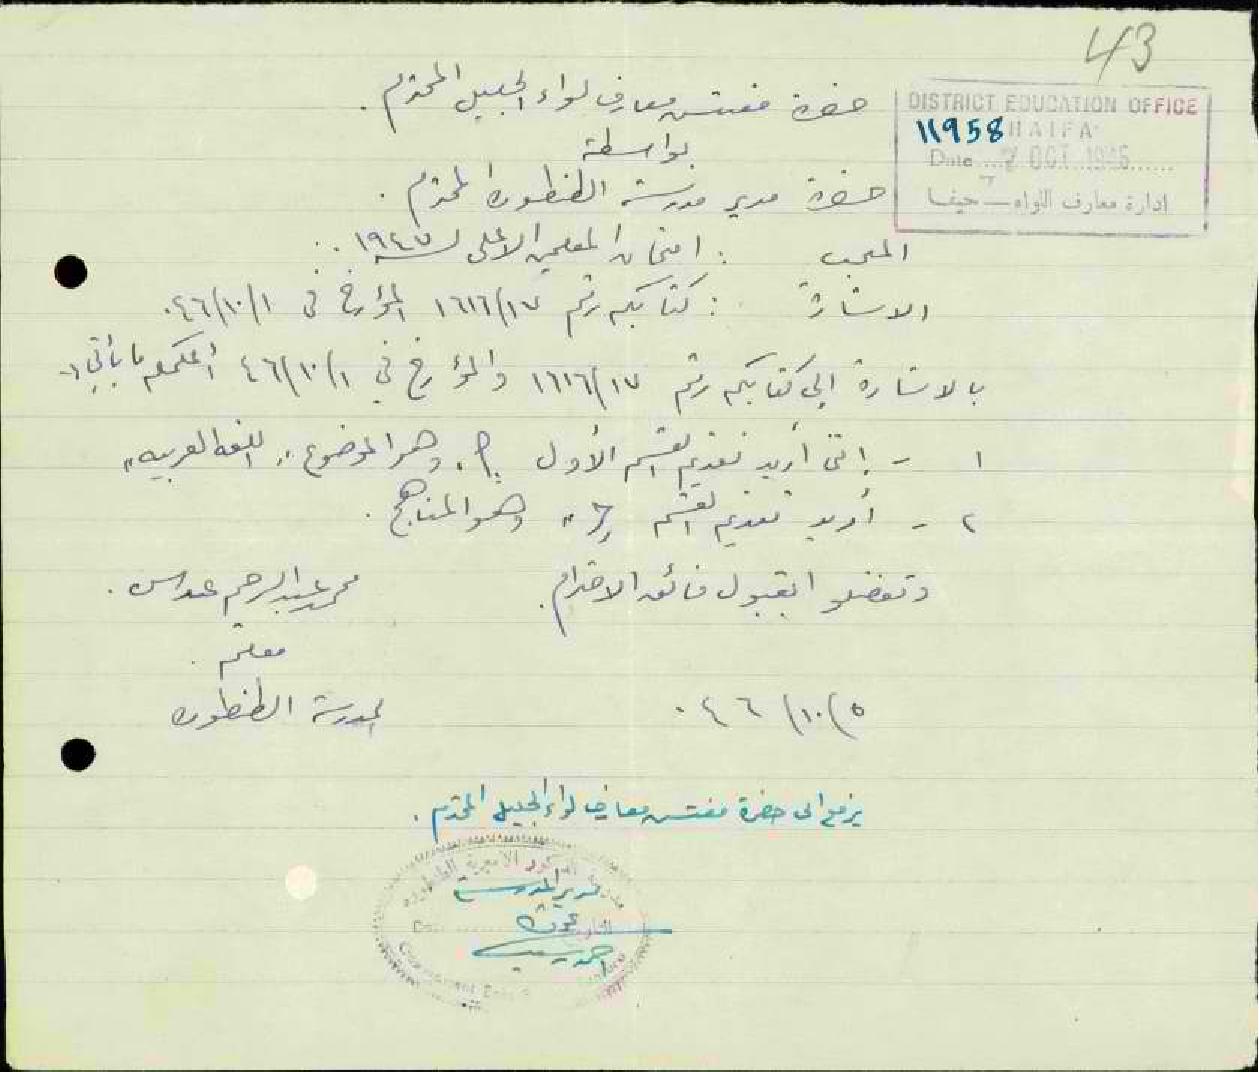 43
DISTRICT EDUCATION OFFICE
11958 HAIFA
Date ... 7 OCT 1946 ......
ادارة معارف اللواء – حيفا
حضرة مفتش معارف لواء الجليل المحترم .
بواسطة
حضرة مدير مدرسة الطنطورة المحترم .
: امتحان المعلمين الاعلى لسنة ١٩٤٧ .
الاشارة : كتابكم رقم ١٦١٦/١٧ المؤرخ في ٤٦/١٠/١.
بالاشارة الى كتابكم رقم ١٦١٦/١٧ والمؤرخ في ٤٦/١٠/١ أعلمكم ما يأتي :-
١ - إنني أريد تقديم القسم الأول وهو الموضوع "اللغة العربيه"
٢ - أريد تقديم القسم وهو المناهج .
وتفضلوا بقبول فائق الاحترام .
محمد عبد الرحيم عدس .
معلم .
لمدرسة الطنطوره
٤٦/١٠/٥ .
يرفع الى حضرة مفتش معارف لواء الجليل المحترم .
مدرسة الذكور الاميرية الطنطوره
مدير المدرسة
التاريخ
Date
Government